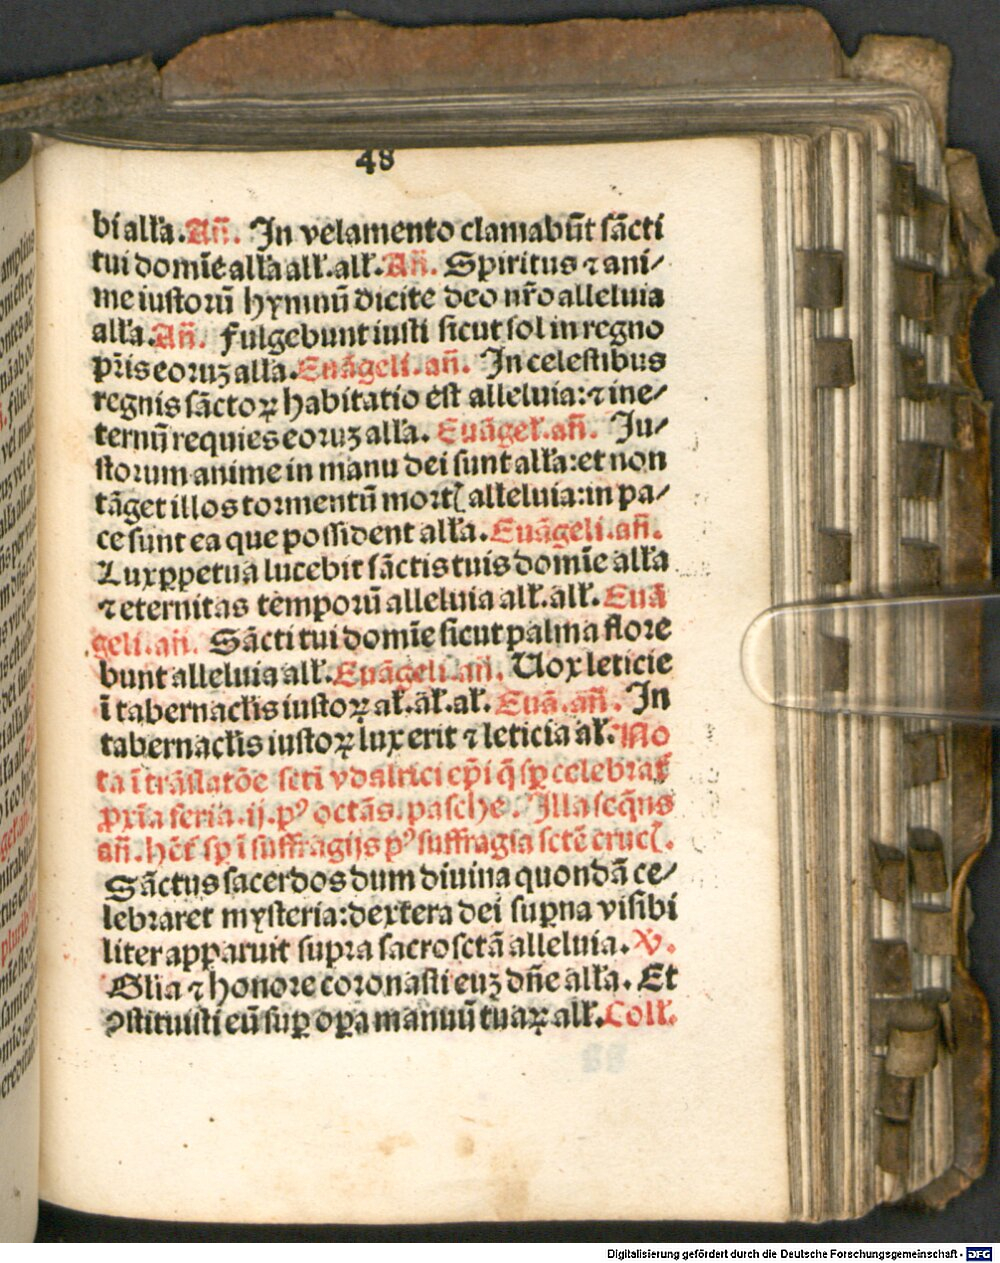 48
bi alła. Añ. In velamento clamabūt sācti
tui domīe alła ałł. ałł. Añ. Spiritus ⁊ ani⸗
me iustorū hymnū dicite deo nr̄o alleluia
alła. Añ. Fulgebunt iusti sicut sol in regno
pr̄is eoruꝫ alla. Euāgeli. añ. In celestibus
regnis sāctoꝝ habitatio est alleluia: ⁊ ine⸗
ternū requies eoruꝫ alła. Euāgeł. añ. Ju⸗
storum anime in manu dei sunt alła: et non
tāget illos tormentū mortꝭ alleluia: in pa⸗
ce sunt ea que possident alła. Euāgeli. añ.
Lux ꝑpetua lucebit sāctis tuis domīe alła
⁊ eternitas temporū alleluia ałł. ałł. Euā
geli. añ. Sācti tui domīe sicut palma flore
bunt alleluia ałł. Euāgeli. añ. Uox leticie
ī tabernacłis iustoꝝ ał. ał. ał. Euā. añ. In
tabernacłis iustoꝝ lux erit ⁊ leticia ał. No
ta ī trāslatōe scti vdalrici ep̄i q̄ sꝑ celebrať
ꝓxīa feria. ij. pꝰ octās. pasche. Illa seq̄ns
añ. hēt sꝑ ī suffragijs pꝰ suffragia scte crucꝭ.
Sāctus sacerdos dum diuina quondā ce⸗
lebraret mysteria: dextera dei suꝑna visibi
liter apparuit supra sacrosctā alleluia. V.
Glīa ⁊ honore coronasti euꝫ dn̄e alła. Et
ꝯstituisti eū suꝑ oꝑa manuū tuaꝝ ałł. Coll.
Digitalisierung gefördert durch die Deutsche Forschungsgemeinschaft - DFG